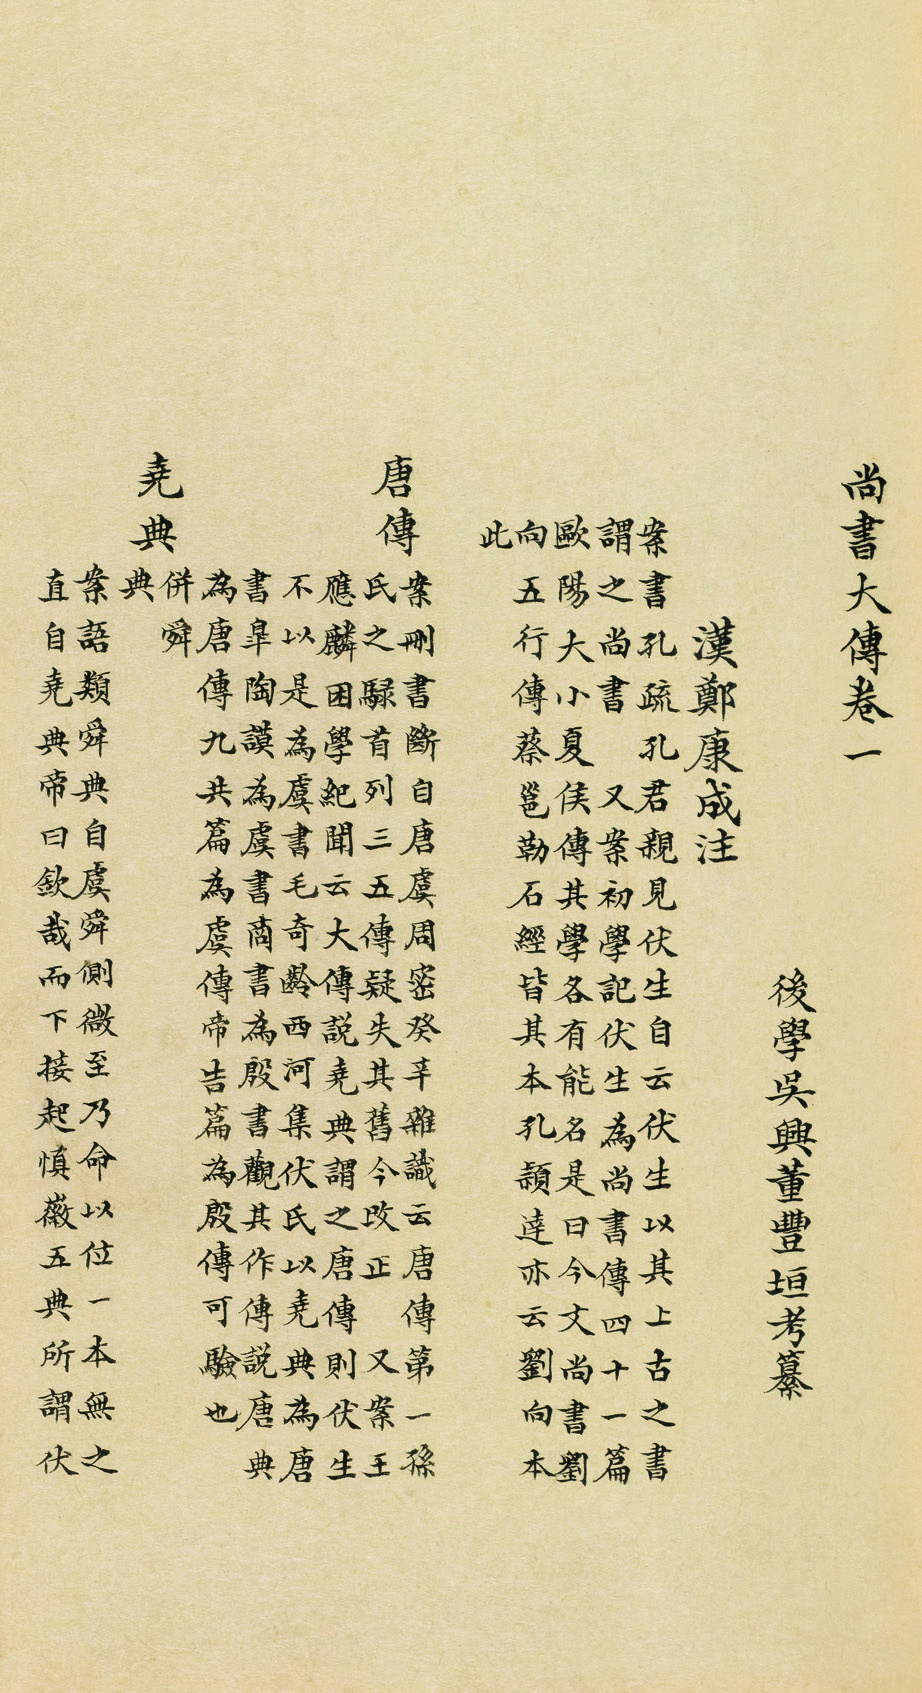 尚書大傳卷一
後學吳興董豐垣考纂
漢鄭康成注
案書孔疏孔君親見伏生自云伏生以其上古之書
謂之尚書 又案初學記伏生為尚書傳四十一篇
歐陽大小夏侯傳其學各有能名是曰今文尚書劉
向五行傳蔡邕勒石經皆其本孔穎達亦云劉向本
此
唐傳
案刪書斷自唐虞周密癸辛雜識云唐傳第一孫
氏之騄首列三五傳疑失其舊今改正 又案王
應麟困學紀聞云大傳說堯典謂之唐傳則伏生
不以是為虞書毛奇齡西河集伏氏以堯典為唐
書皐陶謨為虞書商書為殷書觀其作傳説唐典
為唐傳九共篇為虞傳帝告篇為殷傳可驗也
堯典
併舜
典
案語類舜典自虞舜側微至乃命以位一本無之
直自堯典帝曰欽哉而下接起慎徽五典所謂伏